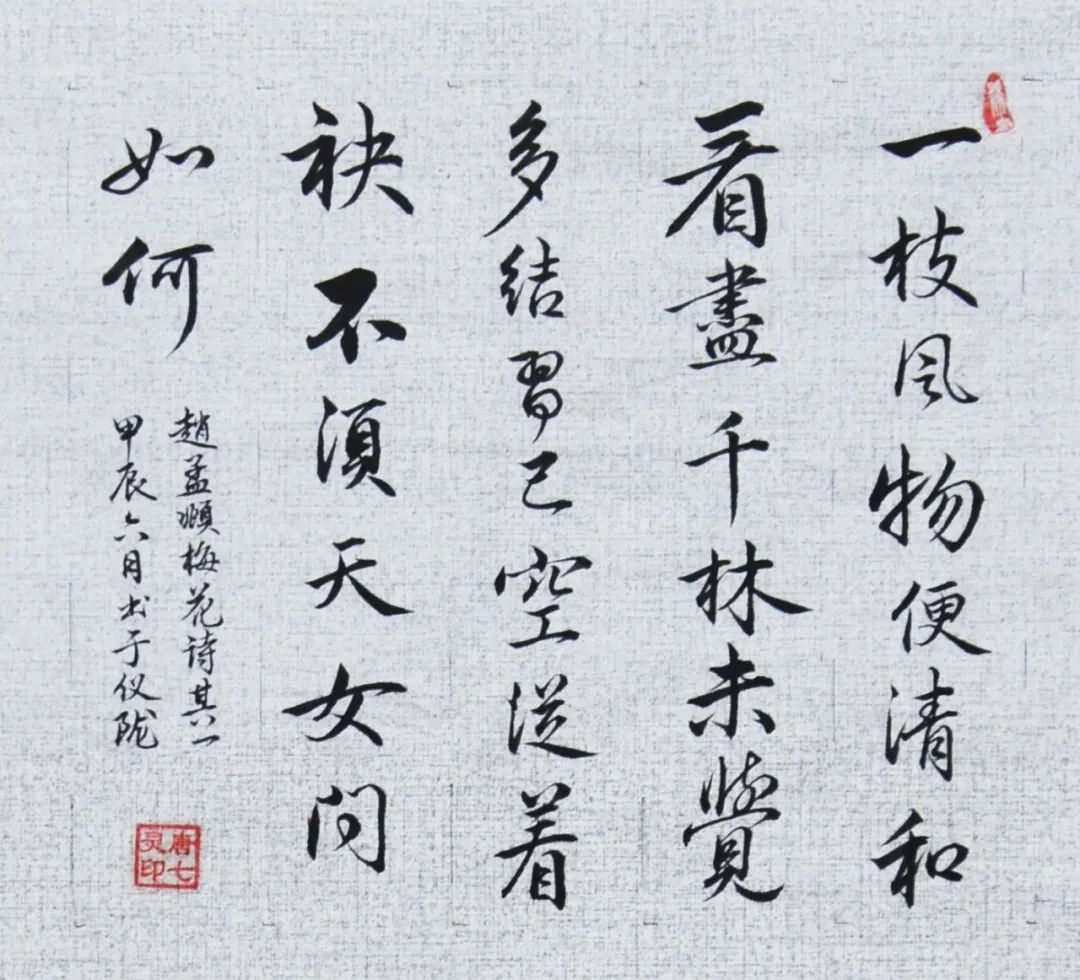 一枝风物便清和
看盡千林未覺
多結習已空從着
袂不須天女問
如何
趙孟頫梅花诗其一
甲辰六月书于仪陇
唐七
灵印